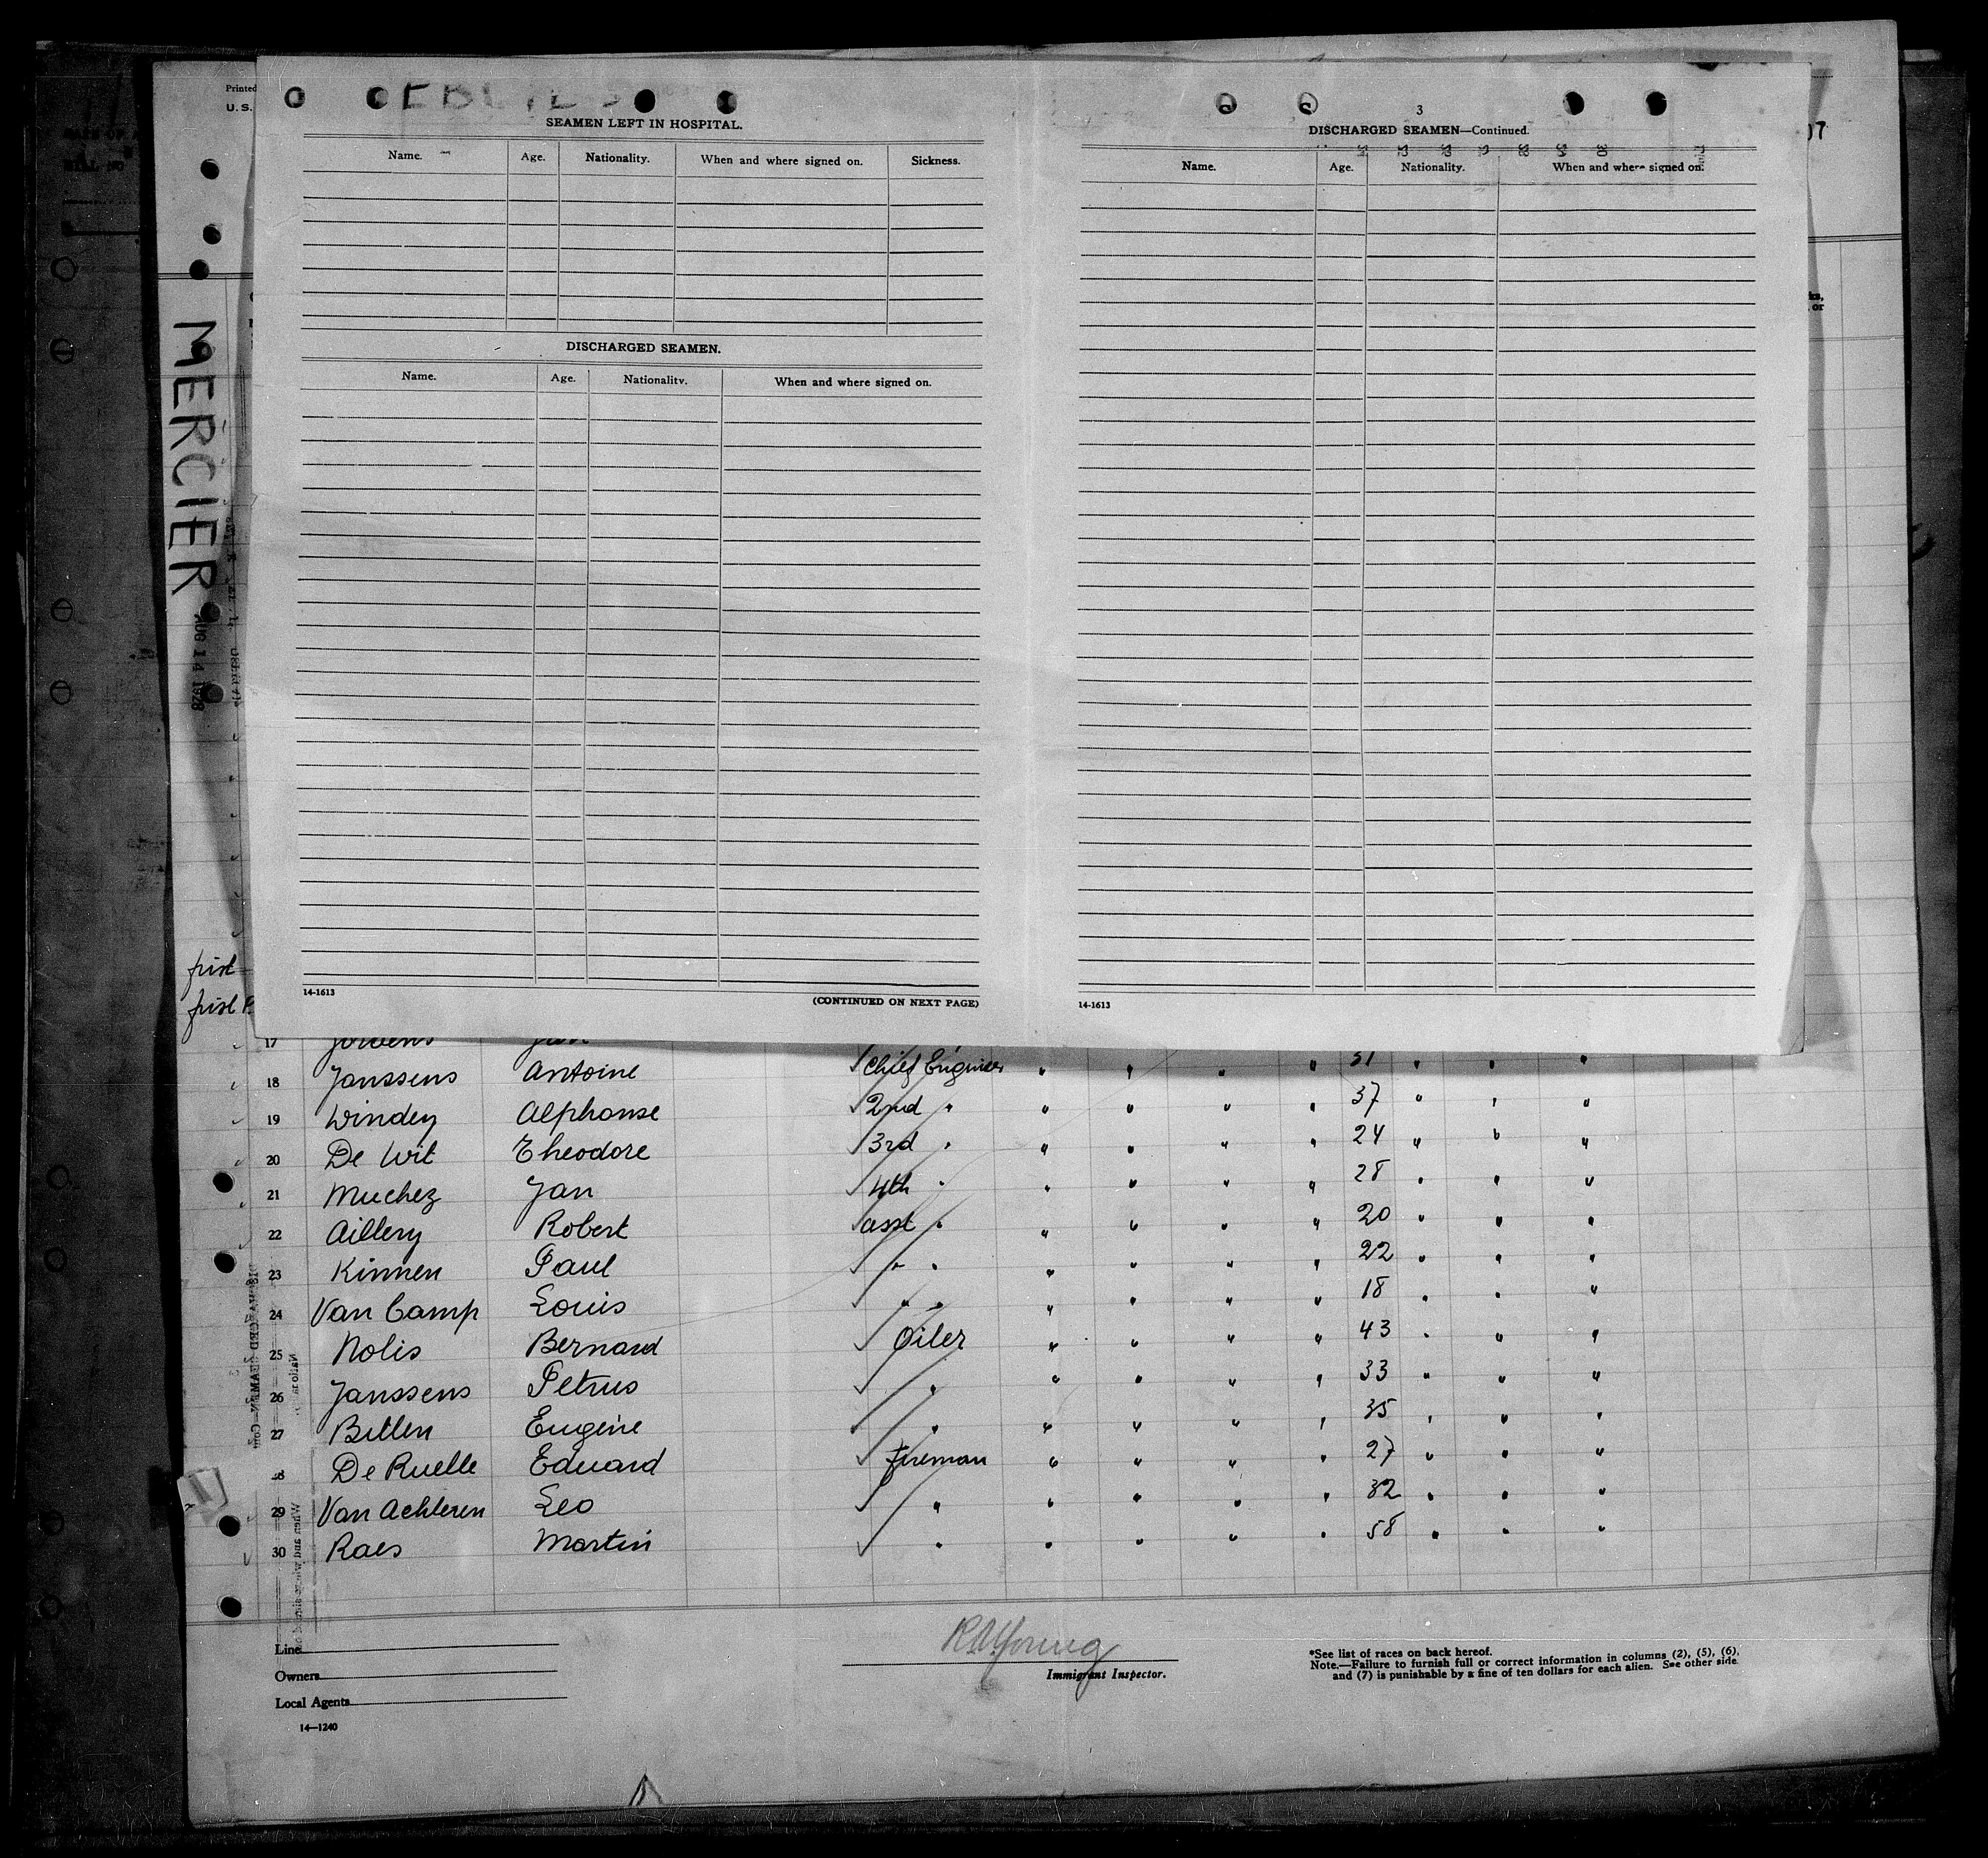 Printed
U. S.
SEAMEN LEFT IN HOSPITAL.
Name. Age. Nationality. When and where signed on. Sickness.
DISCHARGED SEAMEN.
Name. Age. Nationality. When and where signed on.
14-1613
(CONTINUED ON NEXT PAGE)
3
DISCHARGED SEAMEN—Continued.
Name. Age. Nationality. When and where signed on.
14-1613
MERCIER
AUG 14 1928
first
first
17
18 Janssens Antoine Chief Engineer " " " " 51 " " "
19 Windey Alphonse 2nd " " " " " 37 " " "
20 De Wit Theodore 3rd " " " " " 24 " " "
21 Muchez Jan 4th " " " " " 28 " " "
22 Aillery Robert asst " " " " " 20 " " "
23 Kinnen Paul " " " " " " 22 " " "
24 Van Camp Louis " " " " " " 18 " " "
25 Nolis Bernard Oiler " " " " 43 " " "
26 Janssens Petrus " " " " " 33 " " "
27 Billen Eugène " " " " " 35 " " "
28 De Ruelle Eduard Fireman " " " " 27 " " "
29 Van Achteren Leo " " " " " 32 " " "
30 Raes Martin " " " " " 58 " " "
Line
Owners
Local Agents
14—1240
Immigrant Inspector.
*See list of races on back hereof.
Note.—Failure to furnish full or correct information in columns (2), (5), (6),
and (7) is punishable by a fine of ten dollars for each alien. See other side.